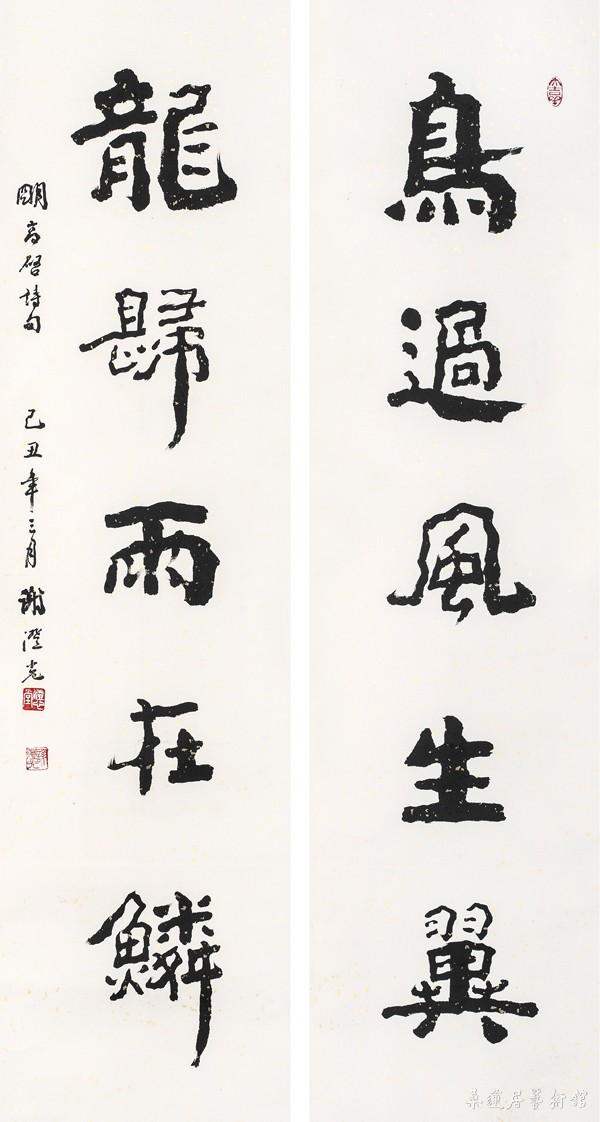 鳥過風生翼
龍歸雨在鱗
明高啓詩句 己丑年三月 謝澄光
桑蓮居藝術館